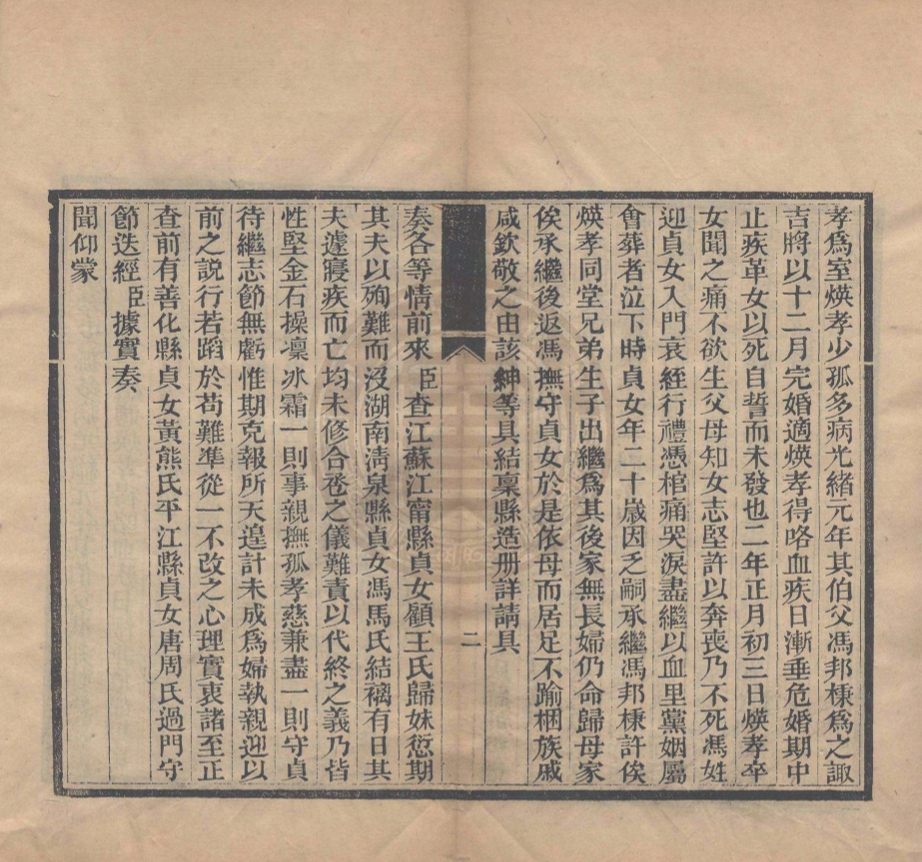 孝爲室煐孝少孤多病光緒元年其伯父馮邦棟爲之諏
吉將以十二月完婚適煐孝得咯血疾日漸垂危婚期中
止疾革女以死自誓而未發也二年正月初三日煐孝卒
女聞之痛不欲生父母知女志堅許以奔喪乃不死馮姓
迎貞女入門衰絰行禮憑棺痛哭淚盡繼以血里黨姻屬
會葬者泣下時貞女年二十歲因乏嗣承繼馮邦棟許俟
煐孝同堂兄弟生子出繼爲其後家無長婦仍命歸母家
俟承繼後返馮撫守貞女於是依母而居足不踰梱族戚
咸欽敬之由該紳等具結稟縣造册詳請具
二
奏各等情前來臣查江蘇江甯縣貞女顧王氏歸妹愆期
其夫以殉難而沒湖南淸泉縣貞女馮馬氏結褵有日其
夫遽寢疾而亡均未修合卺之儀難責以代終之義乃皆
性堅金石操凜冰霜一則事親撫孤孝慈兼盡一則守貞
待繼志節無虧惟期克報所天遑計未成爲婦執親迎以
前之說行若蹈於苟難準從一不改之心理實衷諸至正
查前有善化縣貞女黃熊氏平江縣貞女唐周氏過門守
節迭經臣據實奏
聞仰蒙